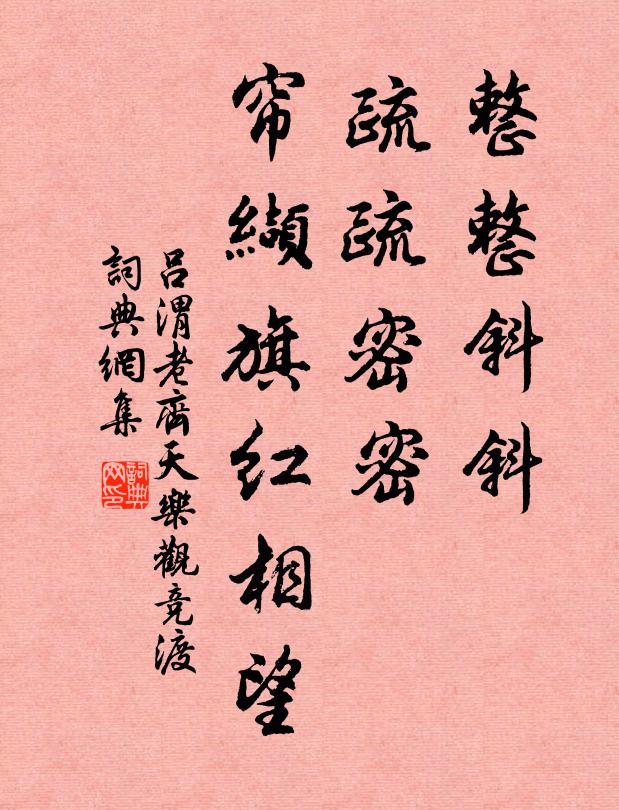 整整斜斜
疏疏密密
帘纈旗红相望
吕渭老齊天樂觀竞渡
詞典網集
詞典网印